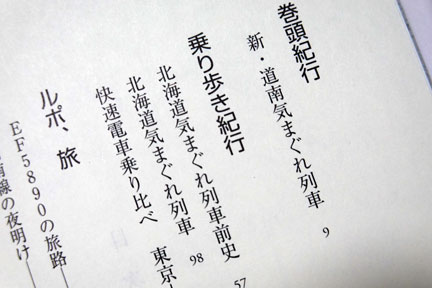 巻頭紀行
新・道南気まぐれ列車 9
乗り歩き紀行
北海道気まぐれ列車前史 57
北海道気まぐれ列車 98
快速電車乗り比べ 東京
ルポ、旅
EF5890の旅路
線の夜明け